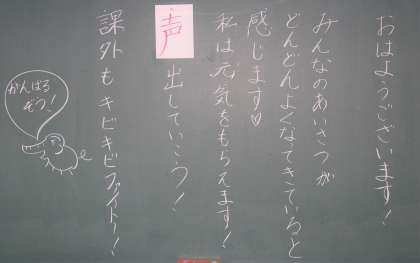 おはようございます!
みんなのあいさつが
どんどんよくなってきていると
感じます♡
私は元気をもらえます!
声出していこう!
課外もキビキビファイトー!
がんばる
ぞう!